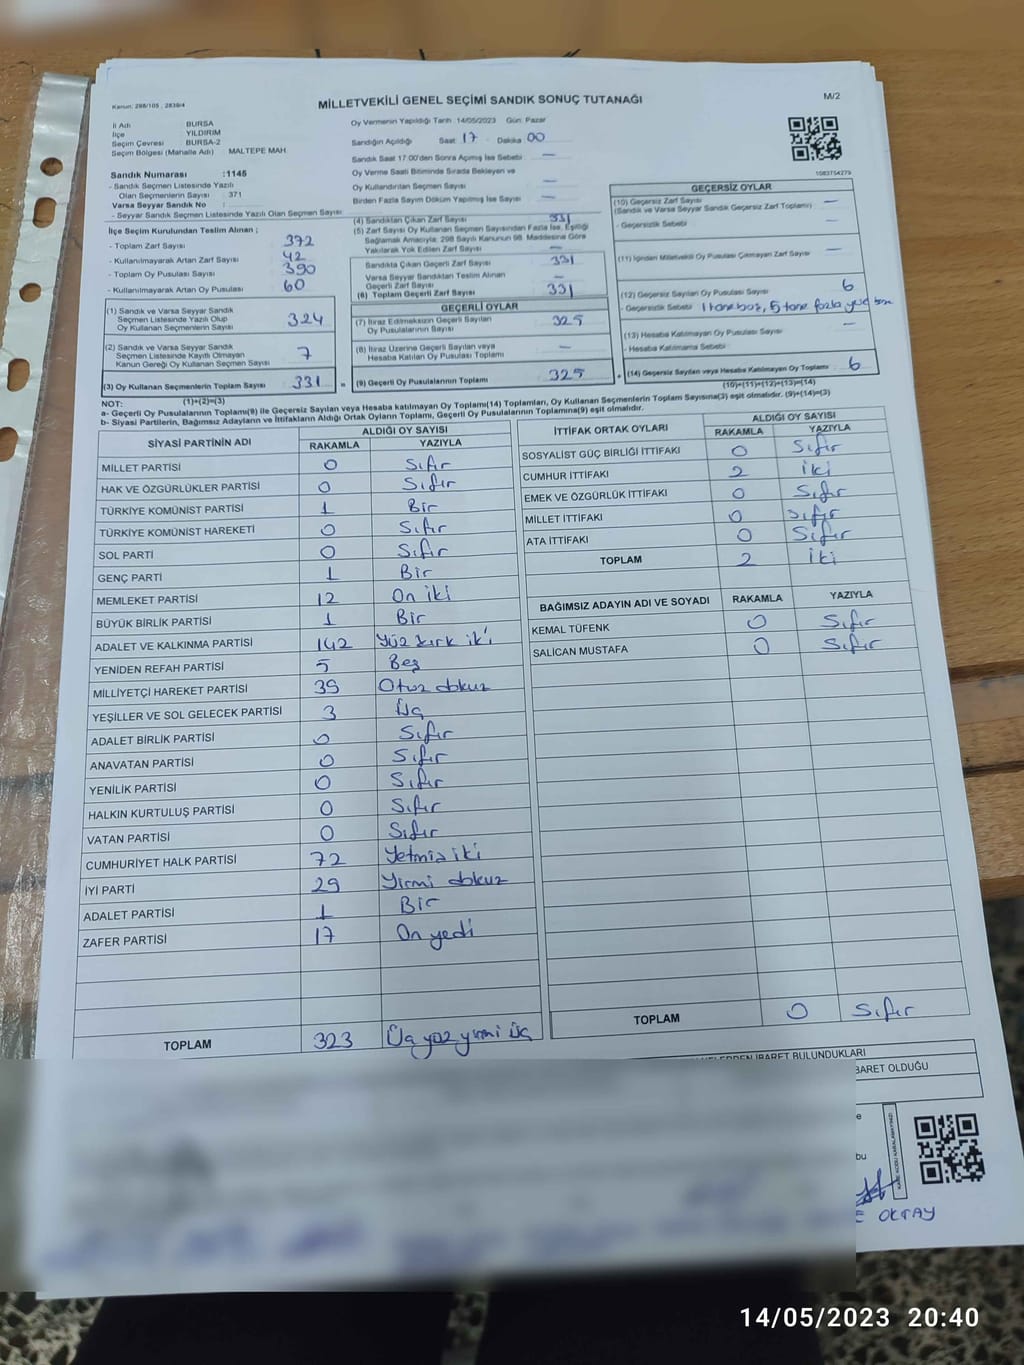 Kanun: 298/105 , 2839/4
MİLLETVEKİLİ GENEL SEÇİMİ SANDIK SONUÇ TUTANAĞI
M/2
İl Adı BURSA
İlçe YILDIRIM
Seçim Çevresi BURSA-2
Seçim Bölgesi (Mahalle Adı) MALTEPE MAH.
Sandık Numarası :1145
- Sandık Seçmen Listesinde Yazılı
Olan Seçmenlerin Sayısı : 371
Varsa Seyyar Sandık No :
- Seyyar Sandık Seçmen Listesinde Yazılı Olan Seçmen Sayısı
Oy Vermenin Yapıldığı Tarih :14/05/2023 Gün: Pazar
Sandığın Açıldığı Saat 17 Dakika 00
Sandık Saat 17:00'den Sonra Açılmış İse Sebebi : —
Oy Verme Saati Bitiminde Sırada Bekleyen ve
Oy Kullandırılan Seçmen Sayısı —
Birden Fazla Sayım Döküm Yapılmış İse Sayısı —
1083754279
İlçe Seçim Kurulundan Teslim Alınan ;
- Toplam Zarf Sayısı 372
- Kullanılmayarak Artan Zarf Sayısı 42
- Toplam Oy Pusulası Sayısı 390
- Kullanılmayarak Artan Oy Pusulası 60
(1) Sandık ve Varsa Seyyar Sandık
Seçmen Listesinde Yazılı Olup
Oy Kullanan Seçmenlerin Sayısı 324
(2) Sandık ve Varsa Seyyar Sandık
Seçmen Listesinde Kayıtlı Olmayan
Kanun Gereği Oy Kullanan Seçmen Sayısı 7
(3) Oy Kullanan Seçmenlerin Toplam Sayısı 331 =
(1)+(2)=(3)
(4) Sandıktan Çıkan Zarf Sayısı 331
(5) Zarf Sayısı Oy Kullanan Seçmen Sayısından Fazla İse, Eşitliği
Sağlamak Amacıyla; 298 Sayılı Kanunun 98. Maddesine Göre
Yakılarak Yok Edilen Zarf Sayısı —
Sandıkta Çıkan Geçerli Zarf Sayısı 331
Varsa Seyyar Sandıktan Teslim Alınan
Geçerli Zarf Sayısı —
(6) Toplam Geçerli Zarf Sayısı 331
GEÇERLİ OYLAR
(7) İtiraz Edilmeksizin Geçerli Sayılan
Oy Pusulalarının Sayısı 325
(8) İtiraz Üzerine Geçerli Sayılan veya
Hesaba Katılan Oy Pusulası Toplamı —
(9) Geçerli Oy Pusulalarının Toplamı 325 +
GEÇERSİZ OYLAR
(10) Geçersiz Zarf Sayısı
(Sandık ve Varsa Seyyar Sandık Geçersiz Zarf Toplamı) —
- Geçersizlik Sebebi —
(11) İçinden Milletvekili Oy Pusulası Çıkmayan Zarf Sayısı —
(12) Geçersiz Sayılan Oy Pusulası Sayısı 6
- Geçersizlik Sebebi 1 tane boş, 5 tane fazla
(13) Hesaba Katılmayan Oy Pusulası Sayısı —
- Hesaba Katılmama Sebebi
(14) Geçersiz Sayılan veya Hesaba Katılmayan Oy Toplamı 6
(10)+(11)+(12)+(13)=(14)
NOT:
a- Geçerli Oy Pusulalarının Toplamı(9) ile Geçersiz Sayılan veya Hesaba katılmayan Oy Toplamı(14) Toplamları, Oy Kullanan Seçmenlerin Toplam Sayısına(3) eşit olmalıdır. (9)+(14)=(3)
b- Siyasi Partilerin, Bağımsız Adayların ve İttifakların Aldığı Ortak Oyların Toplamı, Geçerli Oy Pusulalarının Toplamına(9) eşit olmalıdır.
SİYASİ PARTİNİN ADI ALDIĞI OY SAYISI
RAKAMLA YAZIYLA
MİLLET PARTİSİ 0 Sıfır
HAK VE ÖZGÜRLÜKLER PARTİSİ 0 Sıfır
TÜRKİYE KOMÜNİST PARTİSİ 1 Bir
TÜRKİYE KOMÜNİST HAREKETİ 0 Sıfır
SOL PARTİ 0 Sıfır
GENÇ PARTİ 1 Bir
MEMLEKET PARTİSİ 12 On iki
BÜYÜK BİRLİK PARTİSİ 1 Bir
ADALET VE KALKINMA PARTİSİ 142 Yüz kırk iki
YENİDEN REFAH PARTİSİ 5 Beş
MİLLİYETÇİ HAREKET PARTİSİ 39 Otuz dokuz
YEŞİLLER VE SOL GELECEK PARTİSİ 3 Üç
ADALET BİRLİK PARTİSİ 0 Sıfır
ANAVATAN PARTİSİ 0 Sıfır
YENİLİK PARTİSİ 0 Sıfır
HALKIN KURTULUŞ PARTİSİ 0 Sıfır
VATAN PARTİSİ 0 Sıfır
CUMHURİYET HALK PARTİSİ 72 Yetmiş iki
İYİ PARTİ 29 Yirmi dokuz
ADALET PARTİSİ 1 Bir
ZAFER PARTİSİ 17 On yedi
TOPLAM 323 Üç yüz yirmi üç
İTTİFAK ORTAK OYLARI ALDIĞI OY SAYISI
RAKAMLA YAZIYLA
SOSYALİST GÜÇ BİRLİĞİ İTTİFAKI 0 Sıfır
CUMHUR İTTİFAKI 2 İki
EMEK VE ÖZGÜRLÜK İTTİFAKI 0 Sıfır
MİLLET İTTİFAKI 0 Sıfır
ATA İTTİFAKI 0 Sıfır
TOPLAM 2 İki
BAĞIMSIZ ADAYIN ADI VE SOYADI RAKAMLA YAZIYLA
KEMAL TÜFENK 0 Sıfır
SALİCAN MUSTAFA 0 Sıfır
TOPLAM 0 Sıfır
İBARET BULUNDUKLARI
BARET OLDUĞU
e
bu
E OKTAY
14/05/2023 20:40